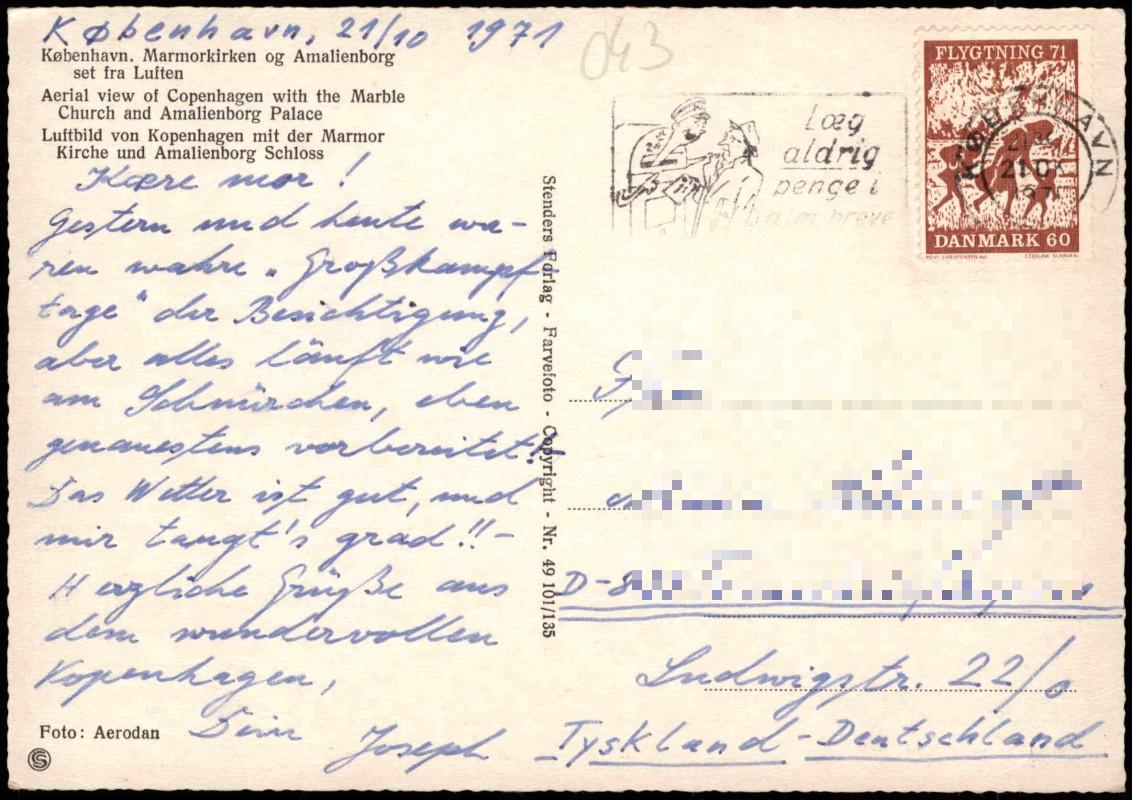 København, 21/10 1971
København. Marmorkirken og Amalienborg
set fra Luften
Aerial view of Copenhagen with the Marble
Church and Amalienborg Palace
Luftbild von Kopenhagen mit der Marmor
Kirche und Amalienborg Schloss
Kære mor!
Gestern und heute wa-
ren wahre „Großkampf
tage" der Besichtigung,
aber alles läuft wie
am Schnürchen, eben
genauestens vorbereitet!-
Das Wetter ist gut, und
mir taugt's grad!!-
Herzliche Grüße aus
dem wundervollen
Kopenhagen,
Dein Joseph
Foto: Aerodan
S
Stenders Forlag - Farvefoto - Copyright - Nr. 49 101/135
043
Læg
aldrig
penge i
breve
FLYGTNING 71
DANMARK 60
POVL CHRISTENSEN del.
CZESLAW SLANIA sc.
KØBENHAVN
D-8
Ludwigstr. 22/0
Tyskland-Deutschland